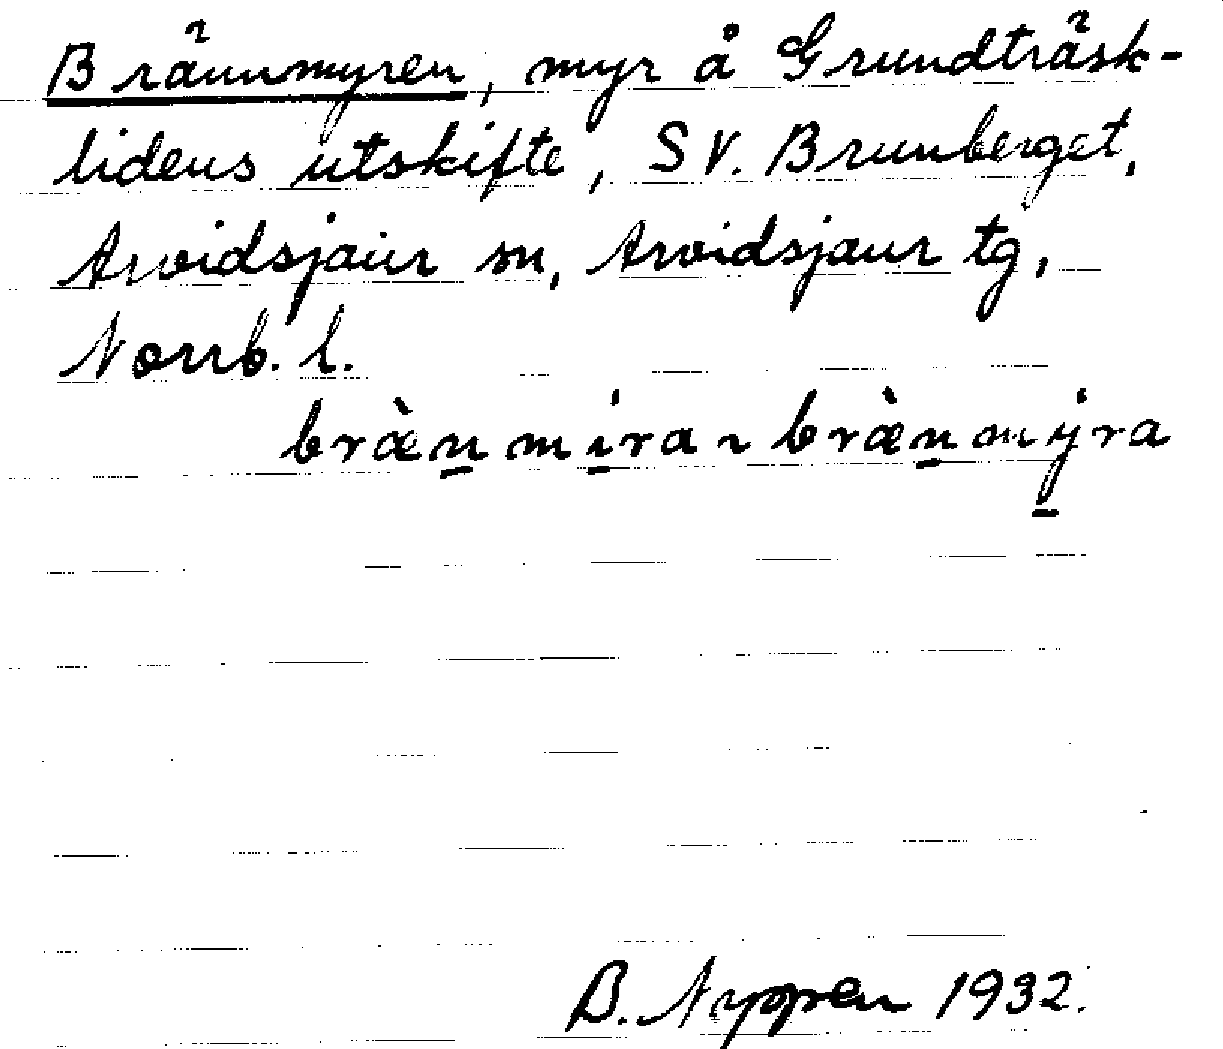 Brännmyren, myr å Grundträsk-
lidens utskifte, SV. Brunberget,
Arvidsjaur sn, Arvidsjaur tg,
Norrb. l.
bræ̀n̲mi̲ra ~ bræ̀n̲my̲ra
B. Nyppen 1932.